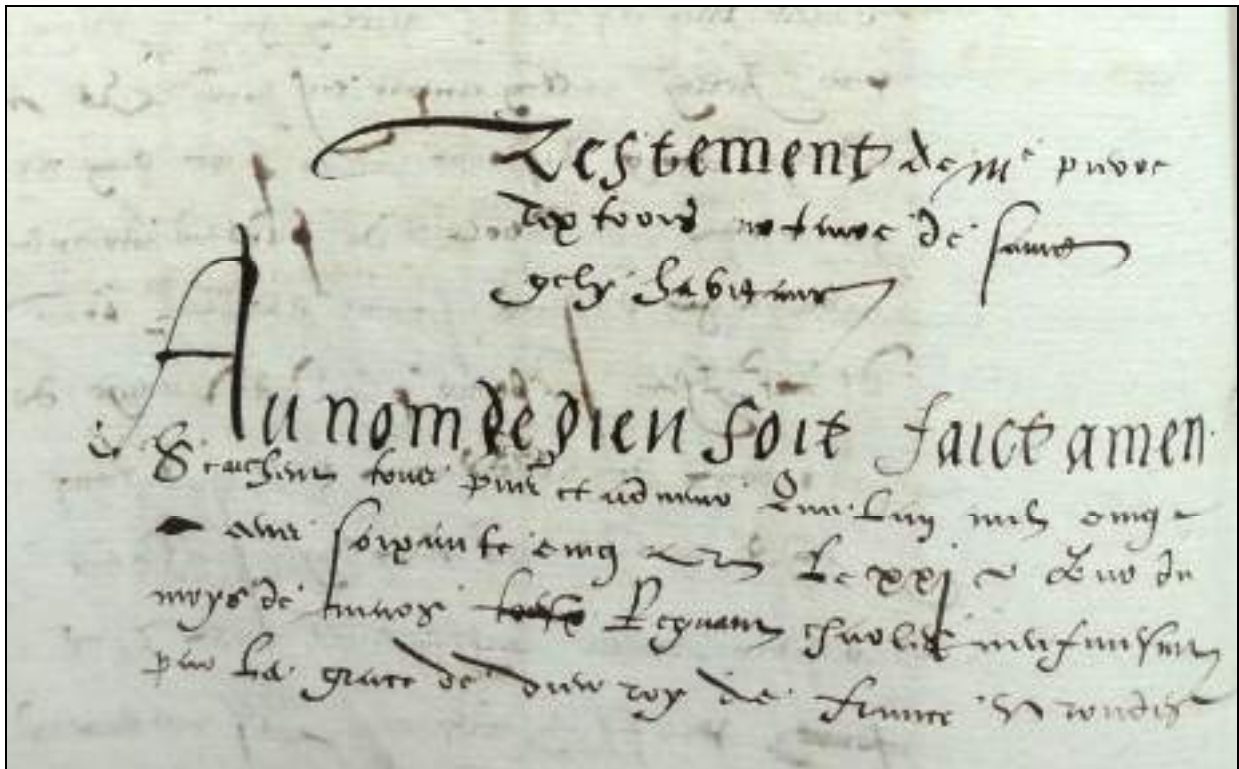 Testement de Me pierre
textoris notaire de sainct
gely habitant
Au nom de dieu soit faict amen
Scaichent tous pnts et advenir Que Lan mil cinq
cens soixante cinq et Le xxje Jour du
moys de Regnant charles neufiesme
par La grace de dieu roy de france